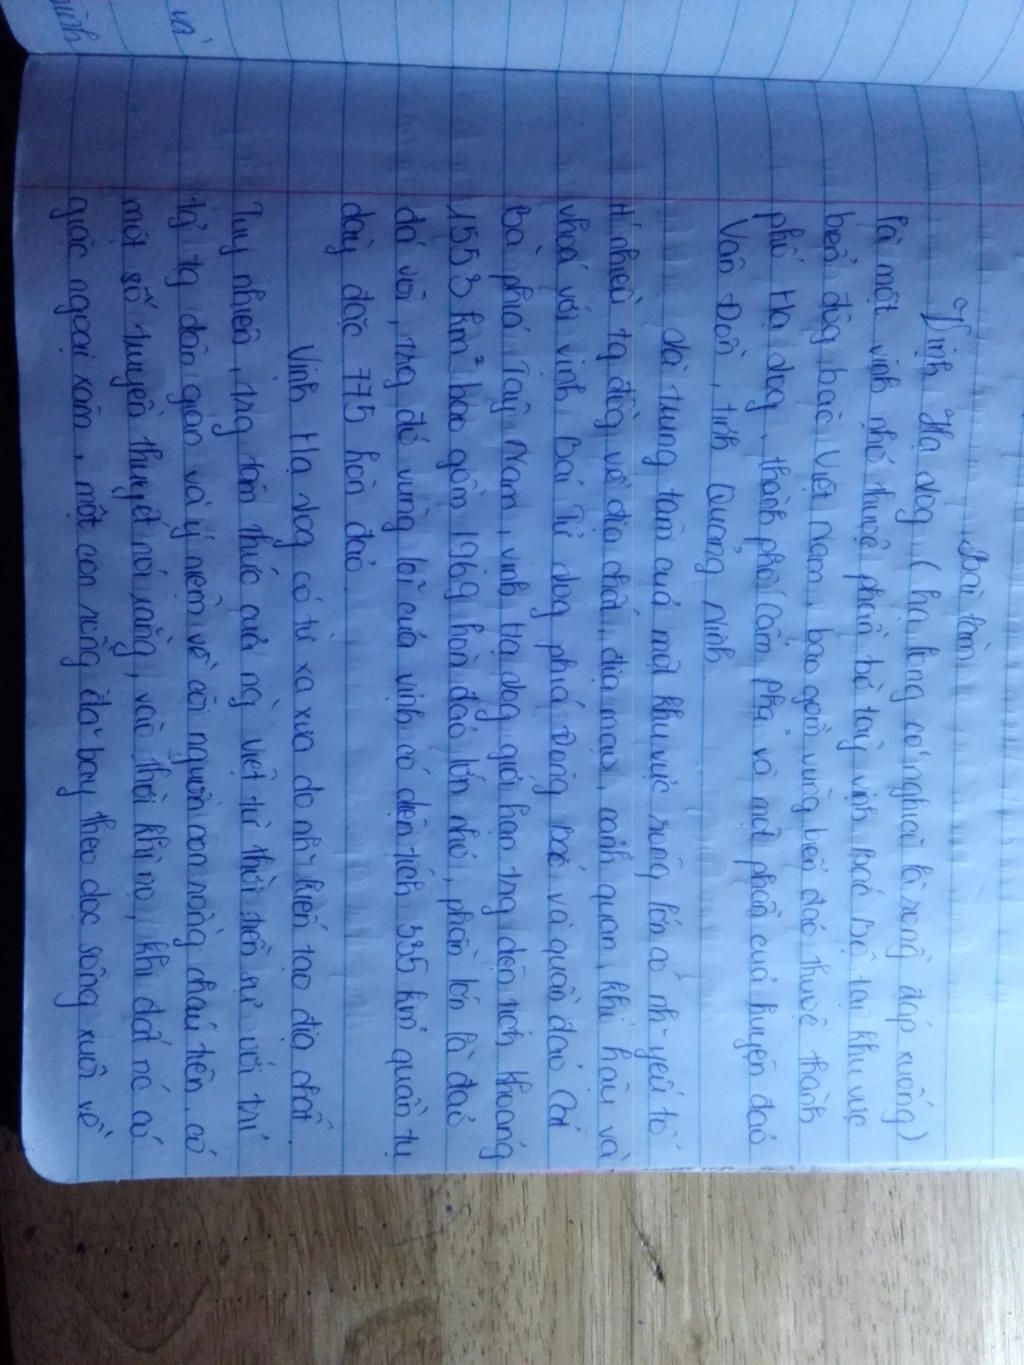 Bài làm
Vịnh Hạ Long (hạ long có nghĩa là rồng đáp xuống)
là một vịnh nhỏ thuộc phần bờ tây vịnh Bắc Bộ tại khu vực
biển đông bắc Việt Nam, bao gồm vùng biển đảo thuộc thành
phố Hạ Long, thành phố Cẩm Phả và một phần của huyện đảo
Vân Đồn, tỉnh Quảng Ninh.
Là trung tâm của một khu vực rộng lớn có nh~ yếu tố
ít nhiều tg đồng về địa chất, địa mạo, cảnh quan, khí hậu và
vhoá với vịnh Bái Tử Long phía Đông Bắc và quần đảo Cát
Bà phía Tây Nam, vịnh Hạ Long giới hạn trg diện tích khoảng
1553 km² bao gồm 1969 hòn đảo lớn nhỏ, phần lớn là đảo
đá vôi, trg đó vùng lõi của vịnh có diện tích 335 km² quần tụ
dày đặc 775 hòn đảo.
Vịnh Hạ Long có từ xa xưa do nh~ kiến tạo địa chất.
Tuy nhiên, trg tâm thức của ng` Việt từ thời tiền sử với trí
tg? tg dân gian và ý niệm về cội nguồn con rồng cháu tiên, có
một số truyền thuyết nói rằng, vào thời khì no, khi đất nc có
giặc ngoại xâm, một con rồng đã bay theo dọc sông xuôi về
và